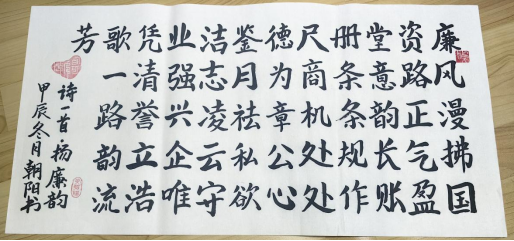 廉风漫拂国
资路正气盈
堂意韵长账
册条条规作
尺商机处处
德为章公心
鉴月祛私欲
洁志凌云守
业强兴企唯
凭清誉立浩
歌一路韵流
芳
诗一首扬廉韵
甲辰冬月朝阳书